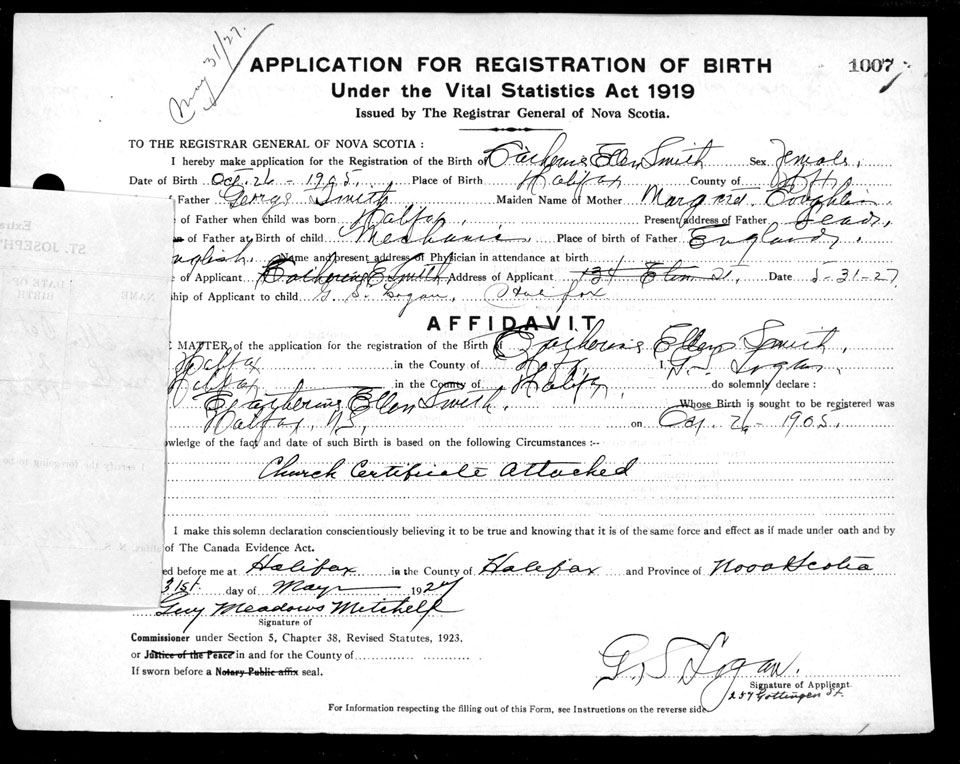 May 31/27.
APPLICATION FOR REGISTRATION OF BIRTH
1007
Under the Vital Statistics Act 1919
Issued by The Registrar General of Nova Scotia.
TO THE REGISTRAR GENERAL OF NOVA SCOTIA :
I hereby make application for the Registration of the Birth of Catherine Ellen Smith Sex Female.
Date of Birth Oct. 26 - 1905. Place of Birth Halifax County of
Father George Smith Maiden Name of Mother Margaret Coughlin
of Father when child was born Halifax, Present address of Father Dead,
of Father at Birth of child Mechanic Place of birth of Father England,
English. Name and present address of Physician in attendance at birth
of Applicant Catherine E. Smith Address of Applicant 34 Elm St. Date 5-31-27
ship of Applicant to child G. S. Logan, Halifax
AFFIDAVIT
MATTER of the application for the registration of the Birth of Catherine Ellen Smith,
Halifax in the County of I, Logan,
Halifax in the County of Halifax do solemnly declare :
Catherine Ellen Smith. Whose Birth is sought to be registered was
Halifax, N.S. on Oct. 26 - 1905.
wledge of the fact and date of such Birth is based on the following Circumstances :--
Church Certificate Attached
I make this solemn declaration conscientiously believing it to be true and knowing that it is of the same force and effect as if made under oath and by
of The Canada Evidence Act.
ed before me at Halifax in the County of Halifax and Province of Nova Scotia
31st. day of May 1927
Guy Meadows Mitchell
Signature of
Commissioner under Section 5, Chapter 38, Revised Statutes, 1923.
or Justice of the Peace in and for the County of
If sworn before a Notary Public affix seal.
G. S. Logan.
Signature of Applicant.
257 Gottingen St.
For Information respecting the filling out of this Form, see Instructions on the reverse side.